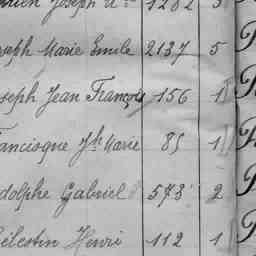 Joseph 1282
Joseph Marie Emile 2137 5
Joseph Jean François 156 1
Francisque Jh Marie 85 1
Adolphe Gabriel 573 2
Célestin Henri 112 1